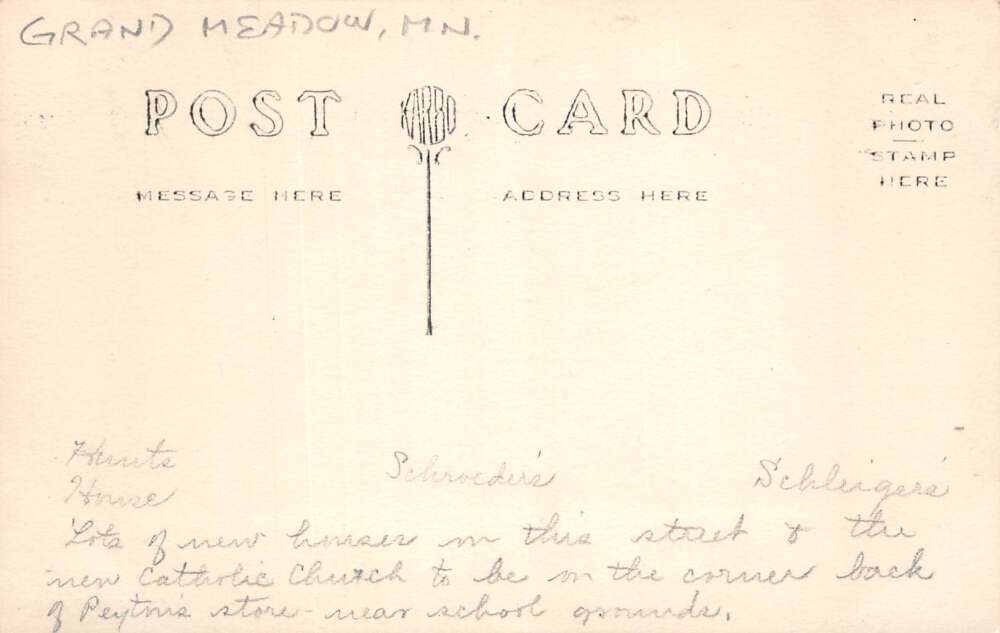 GRAND MEADOW, MN.
POST KARBO CARD
REAL
PHOTO
STAMP
HERE
MESSAGE HERE ADDRESS HERE
Hunts Schroeder's Schleiger's
House
Lots of new houses on this street & the
new Catholic Church to be on the corner back
of Peyton's store - near school grounds.